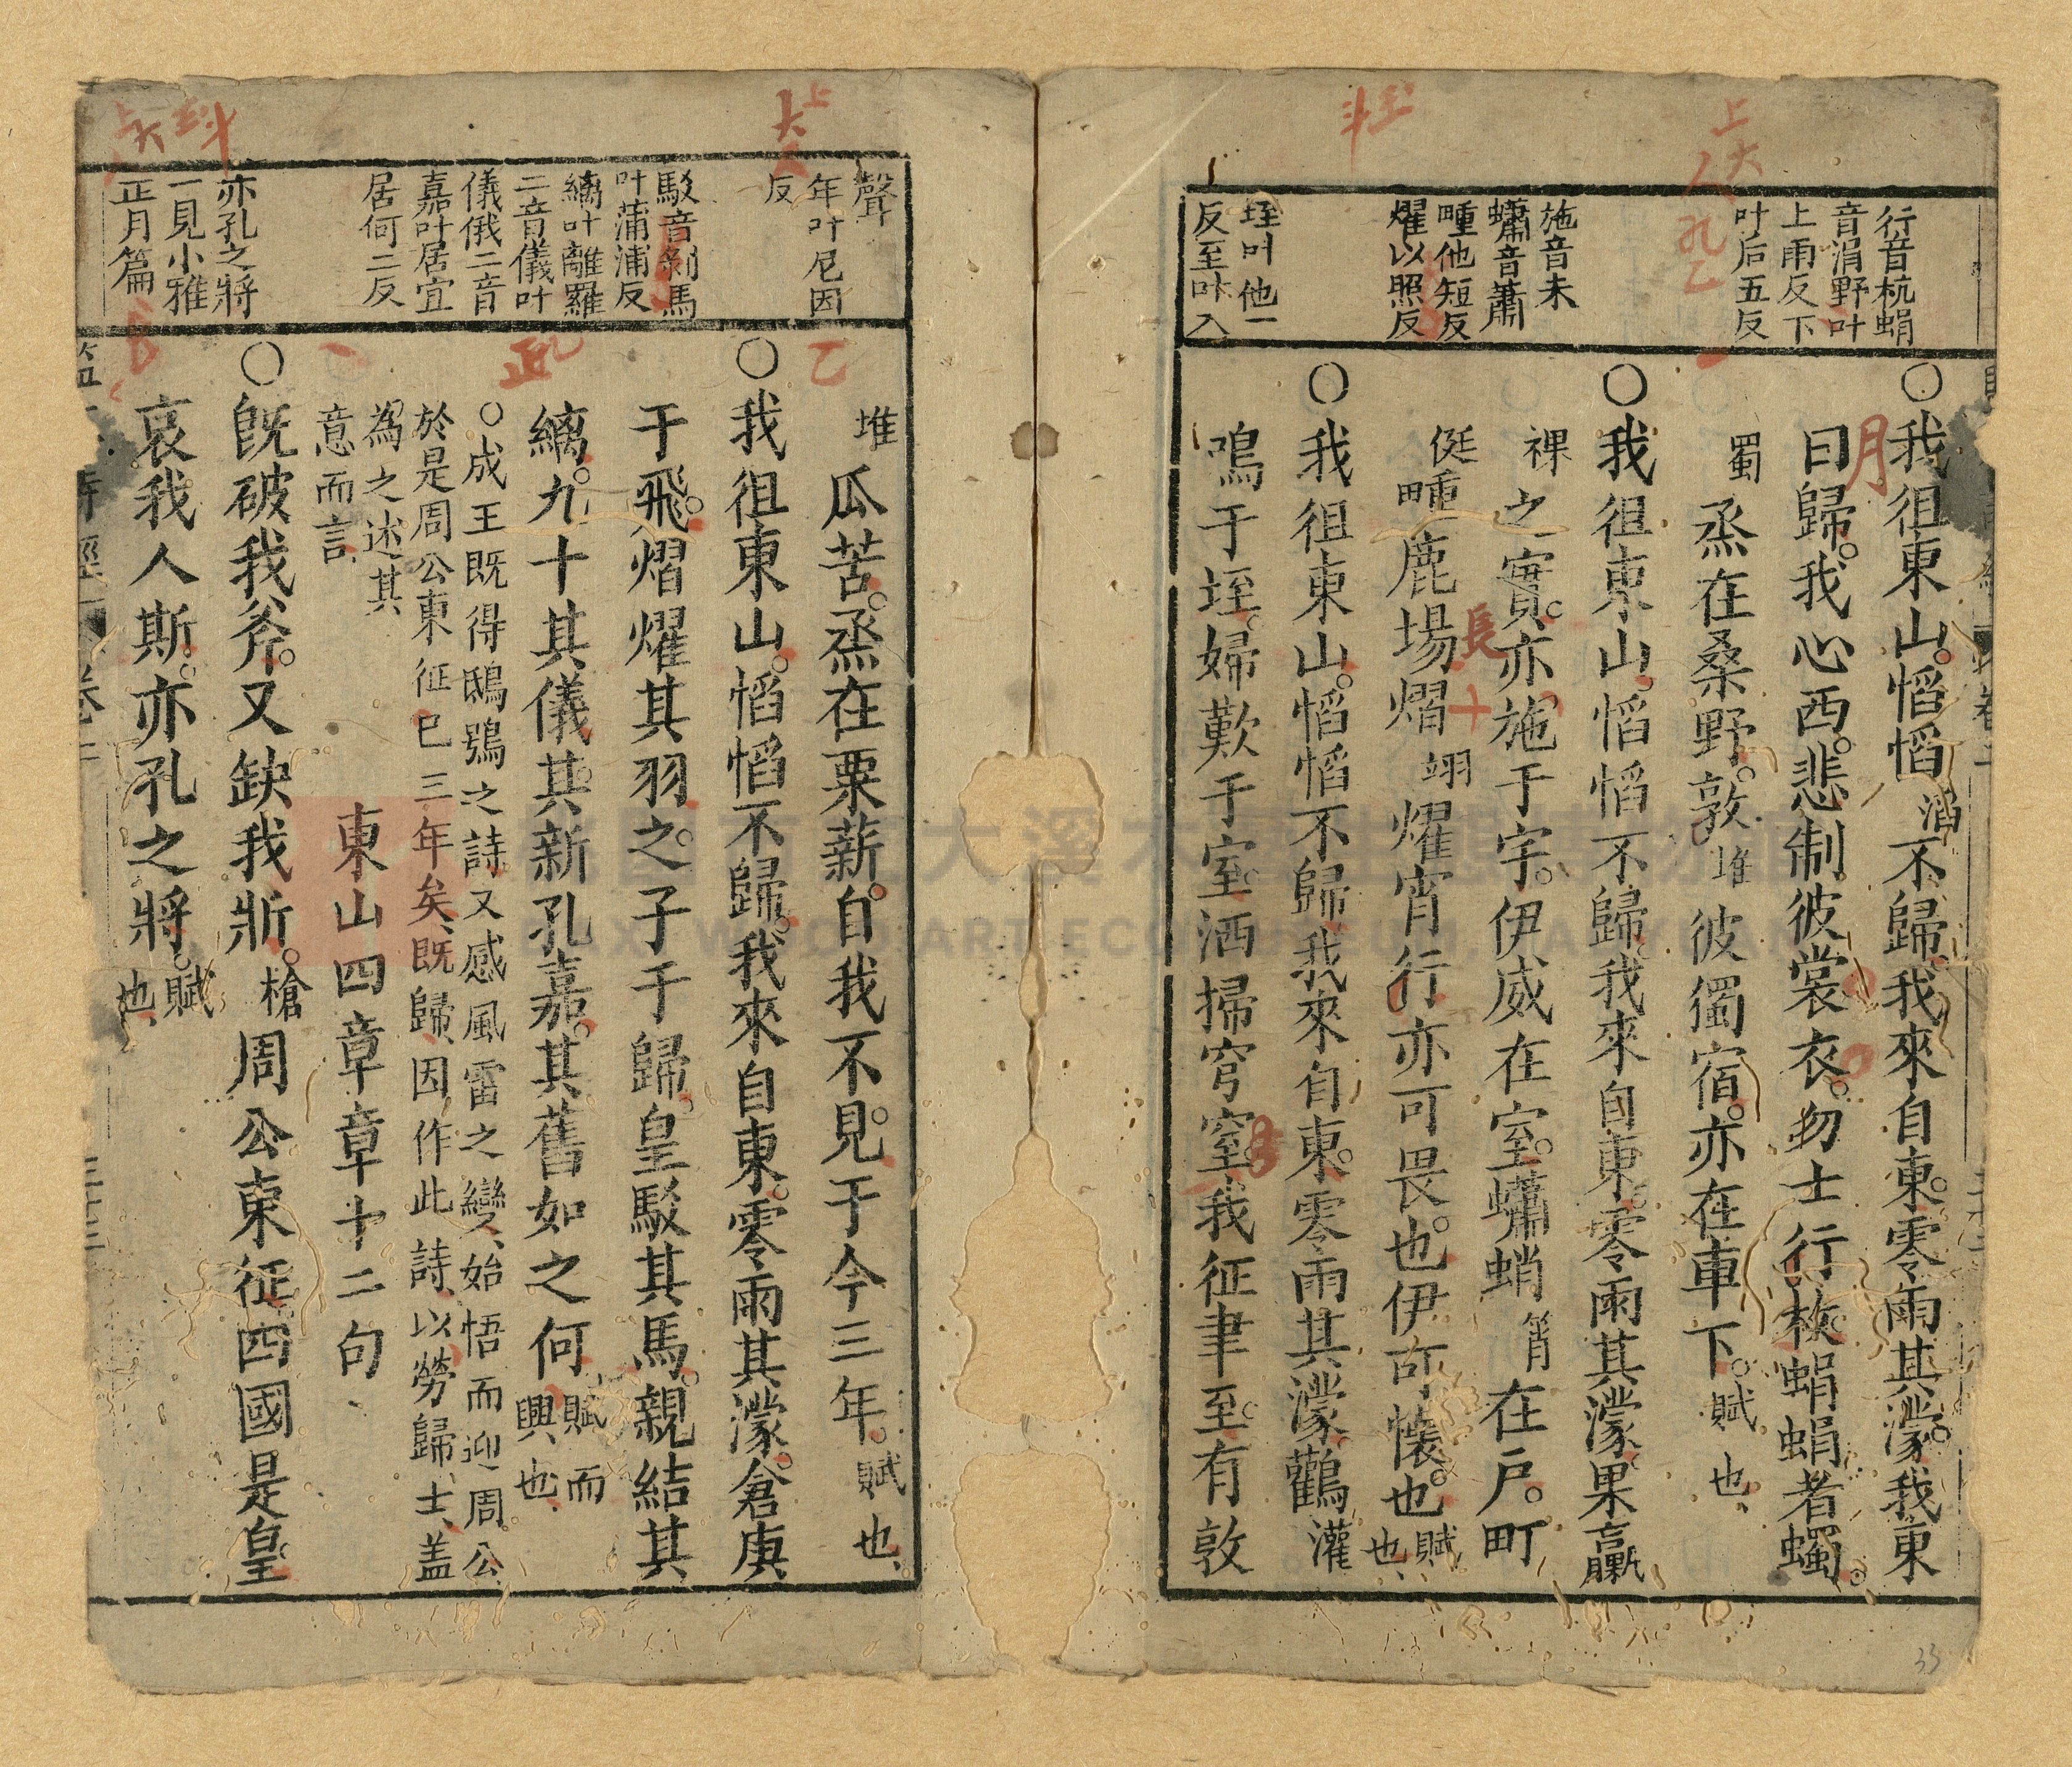 行音杭蜎
音涓野叶
上雨反下
叶后五反
施音未
蠨音蕭
畽他短反
燿以照反
垤叶他一
反至叶入
○我徂東山慆慆滔不歸我來自東零雨其濛我東
曰歸我心西悲制彼裳衣勿士行枚蜎蜎者蠋
蜀烝在桑野敦堆彼獨宿亦在車下賦也
○我徂東山慆慆不歸我來自東零雨其濛果臝
裸之實亦施于宇伊威在室蠨蛸筲在戶町
侹畽鹿場熠翊燿宵行亦可畏也伊可懷也賦也
○我徂東山慆慆不歸我來自東零雨其濛鸛灌
鳴于垤婦歎于室洒掃穹窒我征聿至有敦
聲
年叶尼因
反
駁音剝馬
叶蒲浦反
縭叶離羅
二音儀叶
儀俄二音
嘉叶居宜
居何二反
亦孔之將
一見小雅
正月篇
堆瓜苦烝在栗薪自我不見于今三年賦也
○我徂東山慆慆不歸我來自東零雨其濛倉庚
于飛熠燿其羽之子于歸皇駁其馬親結其
縭九十其儀其新孔嘉其舊如之何賦而興也
○成王既得鴟鴞之詩又感風雷之變始悟而迎周公
於是周公東征已三年矣既歸因作此詩以勞歸士盖
為之述其
意而言
東山四章章十二句
○既破我斧又缺我斨槍周公東征四國是皇
哀我人斯亦孔之將賦也
33